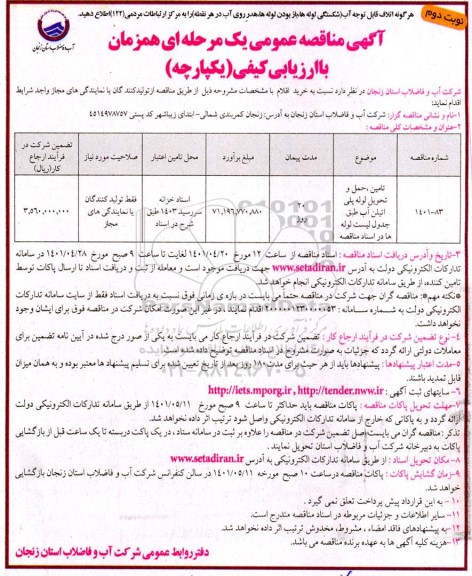 هرگونه اتلاف قابل توجه آب(شکستگی لوله ها،باز بودن لوله ها،هدر روی آب در هر نقطه)را به مرکز ارتباطات مردمی(۱۲۲)اطلاع دهید.
نوبت دوم
آگهی مناقصه عمومی یک مرحله ای همزمان
با ارزیابی کیفی(یکپارچه)
آب و فاضلاب استان زنجان
شرکت آب و فاضلاب استان زنجان در نظر دارد نسبت به خرید اقلام با مشخصات مشروحه ذیل از طریق مناقصه از تولیدکننده گان یا نمایندگی های مجاز واجد شرایط
اقدام نماید:
۱-نام و نشانی مناقصه گزار: شرکت آب و فاضلاب استان زنجان به آدرس: زنجان کمربندی شمالی-ابتدای زیباشهر کد پستی ۴۵۱۴۹۷۸۷۵۷
۲-عنوان و مشخصات کلی مناقصه :
شماره مناقصه موضوع مدت پیمان مبلغ برآورد محل تامین اعتبار صلاحیت مورد نیاز تضمین شرکت در فرآیند ارجاع کار(ریال)
۱۴۰۱-۸۳ تامین ،حمل و تحویل لوله پلی اتیلن آب طبق جدول لیست لوله ها در اسناد مناقصه ۲۰ روز ۷۱,۱۹۶,۷۷۰,۸۸۰ اسناد خزانه سررسید ۱۴۰۳ طبق شرح در اسناد فقط تولید کنندگان یا نمایندگی های مجاز ۳,۵۶۰,۰۰۰,۰۰۰
۳-تاریخ و آدرس دریافت اسناد مناقصه : اسناد مناقصه از ساعت ۱۲ مورخ ۱۴۰۱/۰۴/۲۰ لغایت تا ساعت ۹ صبح مورخ ۱۴۰۱/۰۴/۲۸ در سامانه
تدارکات الکترونیکی دولت به آدرس www.setadiran.ir جهت دریافت موجود است و معامله از ثبت و دریافت اسناد تا ارسال پاکات توسط
تامین کننده، از طریق سامانه تدارکات الکترونیکی انجام خواهد شد.
*نکته مهم*: مناقصه گران جهت شرکت در مناقصه حتما می بایست در بازه ی زمانی فوق نسبت به دریافت اسناد فقط از سایت سامانه تدارکات
الکترونیکی دولت به شماره اقدام نمایند ، در غیر این صورت امکان شرکت در مناقصه فوق برای ایشان وجود
نخواهد داشت.
۴-نوع تضمین شرکت در فرآیند ارجاع کار: تضمین شرکت در فرآیند ارجاع کار می بایست به یکی از صور درج شده در آیین نامه تضمین برای
معاملات دولتی ارائه گردد که جزئیات به صورت مشروح در اسناد مناقصه توضیح داده شده است.
۵-مدت اعتبار پیشنهادها : پیشنهادها باید از هر حیث برای مدت ۱۸۰ روز بعد از تاریخ تعیین شده برای تسلیم پیشنهاد ها معتبر بوده و به همان میزان
قابل تمدید باشند.
۶- سایتهای ثبت آگهی : http://iets.mporg.ir , http://tender.nww.ir
۷-مهلت تحویل پاکات مناقصه : پاکات مناقصه باید حداکثر تا ساعت ۹ صبح مورخ ۱۴۰۱/۰۵/۱۱ از طریق سامانه تدارکات الکترونیکی دولت
ارائه گردد و به پاکاتی که خارج از سامانه تدارکات الکترونیکی واصل شود ترتیب اثر داده نخواهد شد.
تذکر:مناقصه گران می بایست اصل تضمین شرکت در مناقصه را علاوه بر ثبت در سامانه ستاد ، در یک پاکت دربسته تا یک ساعت قبل از بازگشایی
پاکات به دبیرخانه شرکت آب و فاضلاب استان تحویل نمایند .
۸-مکان تحویل اسناد : از طریق سامانه تدارکات الکترونیکی به آدرس www.setadiran.ir
۹-زمان گشایش پاکات : پاکات مناقصه درساعت ۱۰ صبح مورخه ۱۴۰۱/۰۵/۱۱ در سالن کنفرانس شرکت آب و فاضلاب استان زنجان بازگشایی
خواهد شد.
۱۰- به این قرارداد پیش پرداخت تعلق نمی گیرد .
۱۱- سایر اطلاعات و جزئیات مربوطه در اسناد مناقصه مندرج است.
۱۲-به پیشنهادهای فاقد امضاء ، مشروط، مخدوش ترتیب اثر داده نخواهد شد.
۱۳-هزینه کلیه آگهی ها به عهده برنده مناقصه می باشد.
دفتر روابط عمومی شرکت آب و فاضلاب استان زنجان